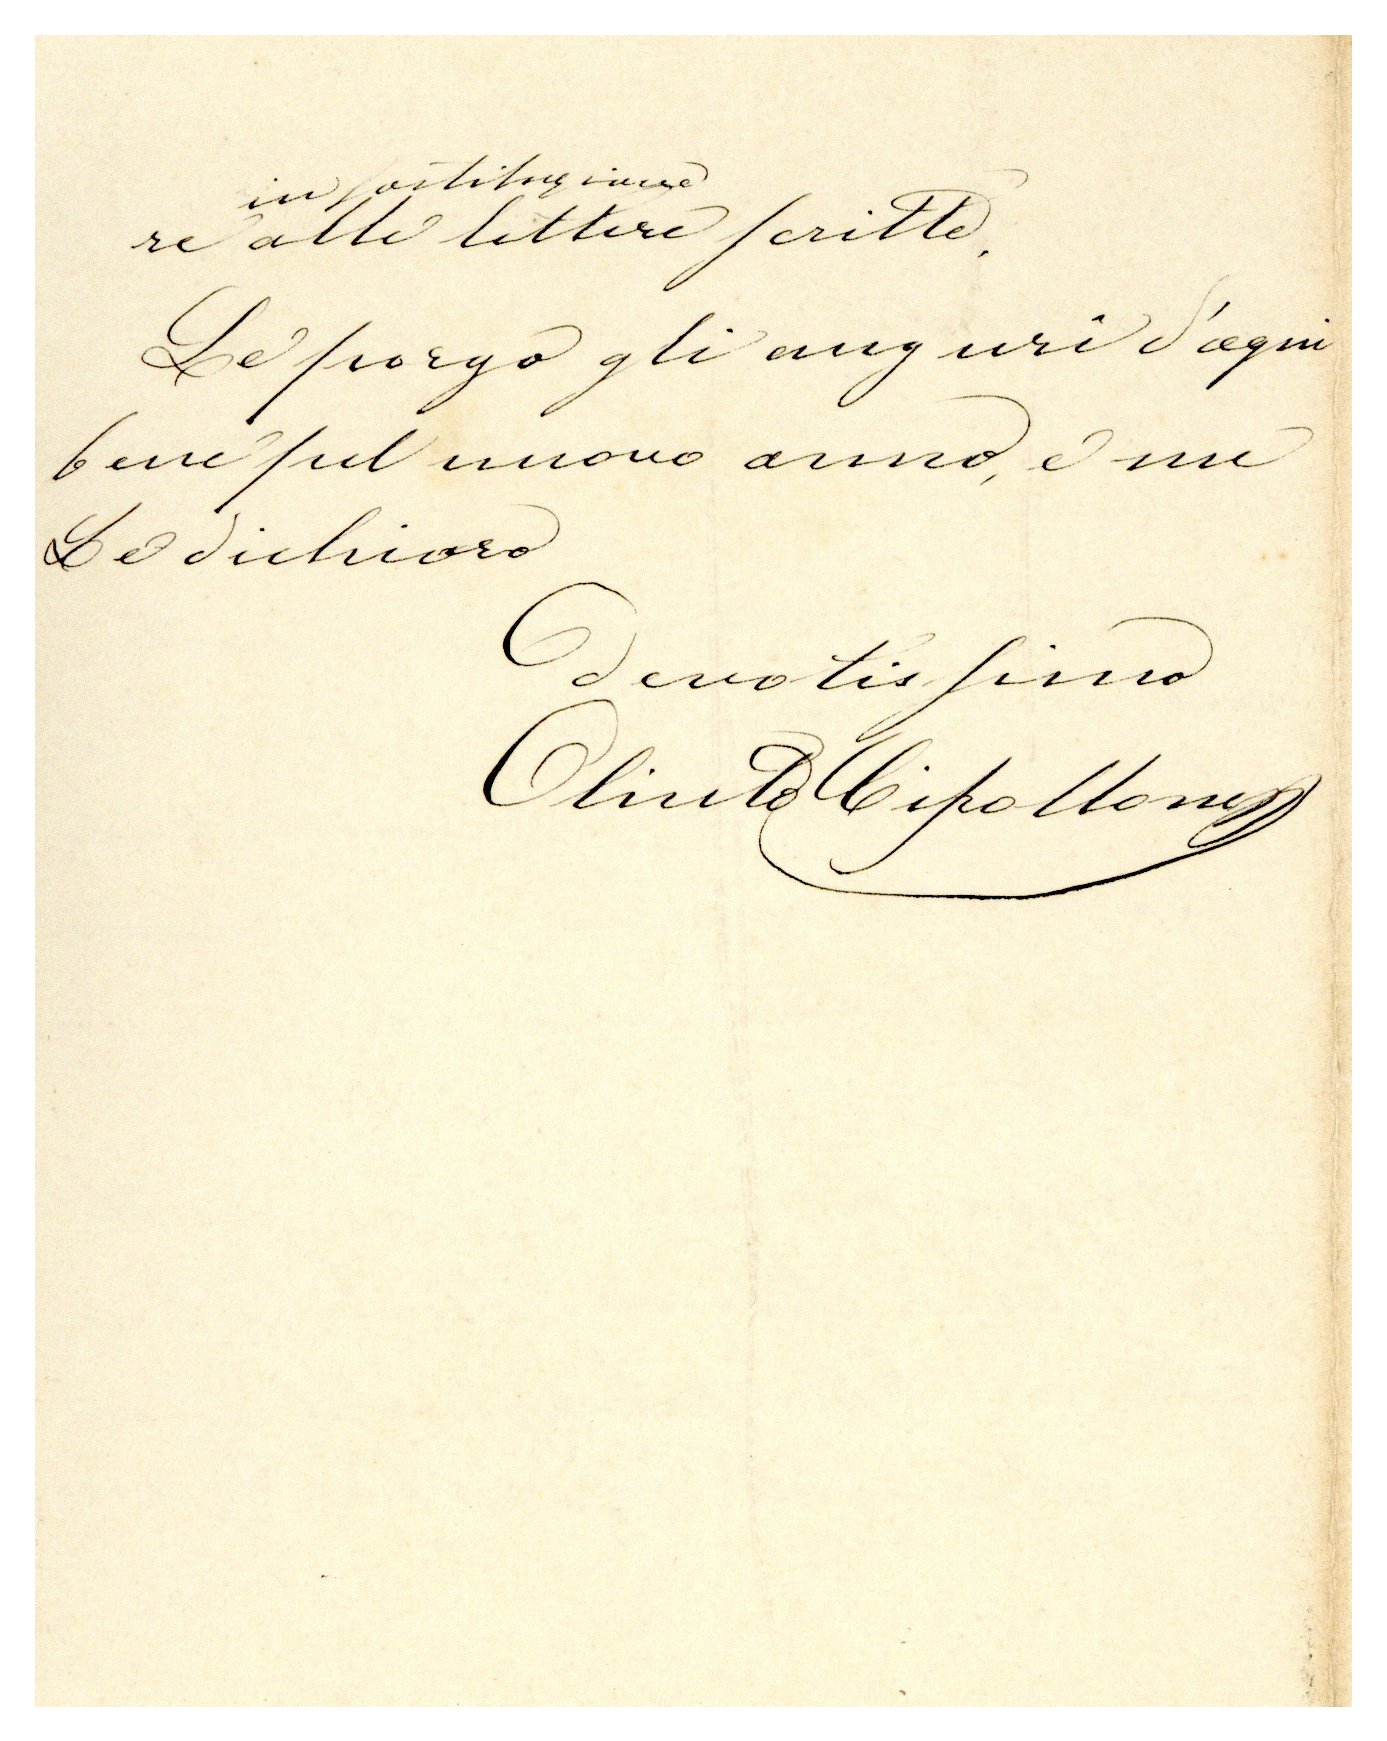 in sostituzione
re alle lettere scritte.
Le porgo gli auguri d'ogni
bene pel nuovo anno, e me
Le dichiaro
devotissimo
Olinto Cipollone